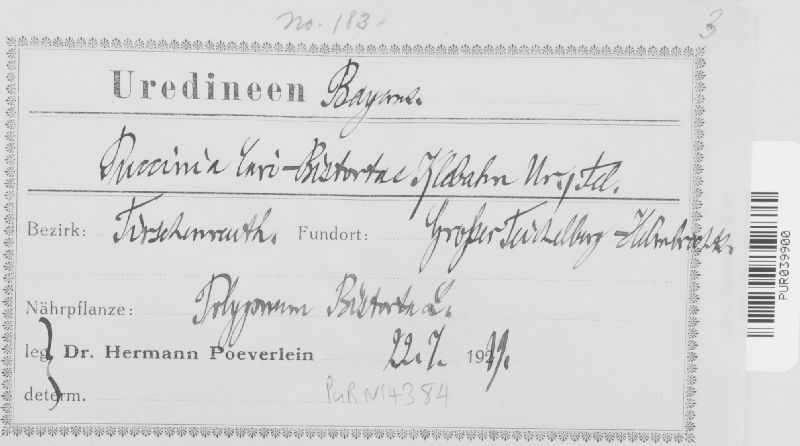 No. 183.
3
Uredineen Bayerns.
Puccinia Cari-Bistortae Klebahn Ur. Tel.
Bezirk: Tirschenreuth. Fundort: Großer Teichelberg -
Nährpflanze: Polygonum Bistorta L.
leg. Dr. Hermann Poeverlein 22. 7. 1929.
determ.
PURN14384
PUR039900